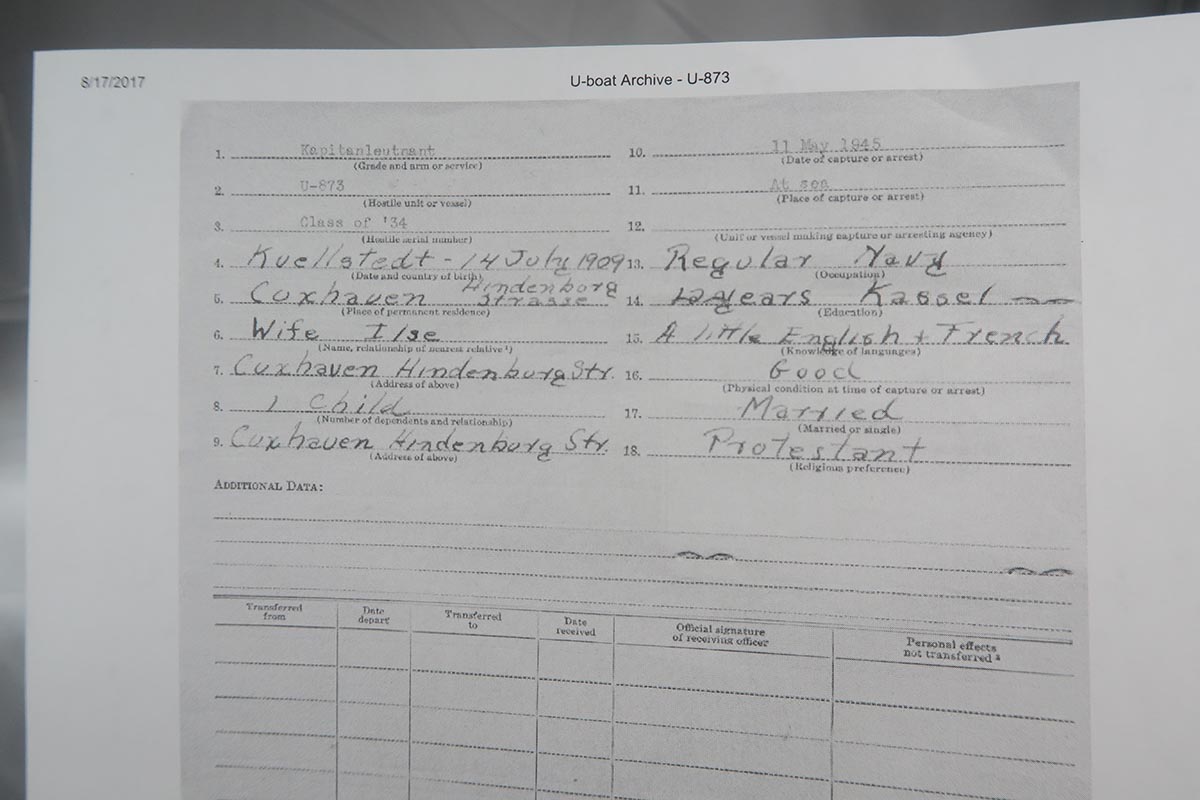 8/17/2017
U-boat Archive - U-873
1. Kapitanleutnant
(Grade and arm or service)
2. U-873
(Hostile unit or vessel)
3. Class of '34
(Hostile serial number)
4. Kuellstedt - 14 July 1909
(Date and country of birth)
5. Cuxhaven Hindenburg Strasse
(Place of permanent residence)
6. Wife Ilse
(Name, relationship of nearest relative ¹)
7. Cuxhaven Hindenburg Str.
(Address of above)
8. 1 Child
(Number of dependents and relationship)
9. Cuxhaven Hindenburg Str.
(Address of above)
10. 11 May 1945
(Date of capture or arrest)
11. At sea
(Place of capture or arrest)
12.
(Unit or vessel making capture or arresting agency)
13. Regular Navy
(Occupation)
14. years Kassel
(Education)
15. A little English + French
(Knowledge of languages)
16. Good
(Physical condition at time of capture or arrest)
17. Married
(Married or single)
18. Protestant
(Religious preference)
ADDITIONAL DATA:
Transferred from
Date depart.
Transferred to
Date received
Official signature of receiving officer
Personal effects not transferred ²